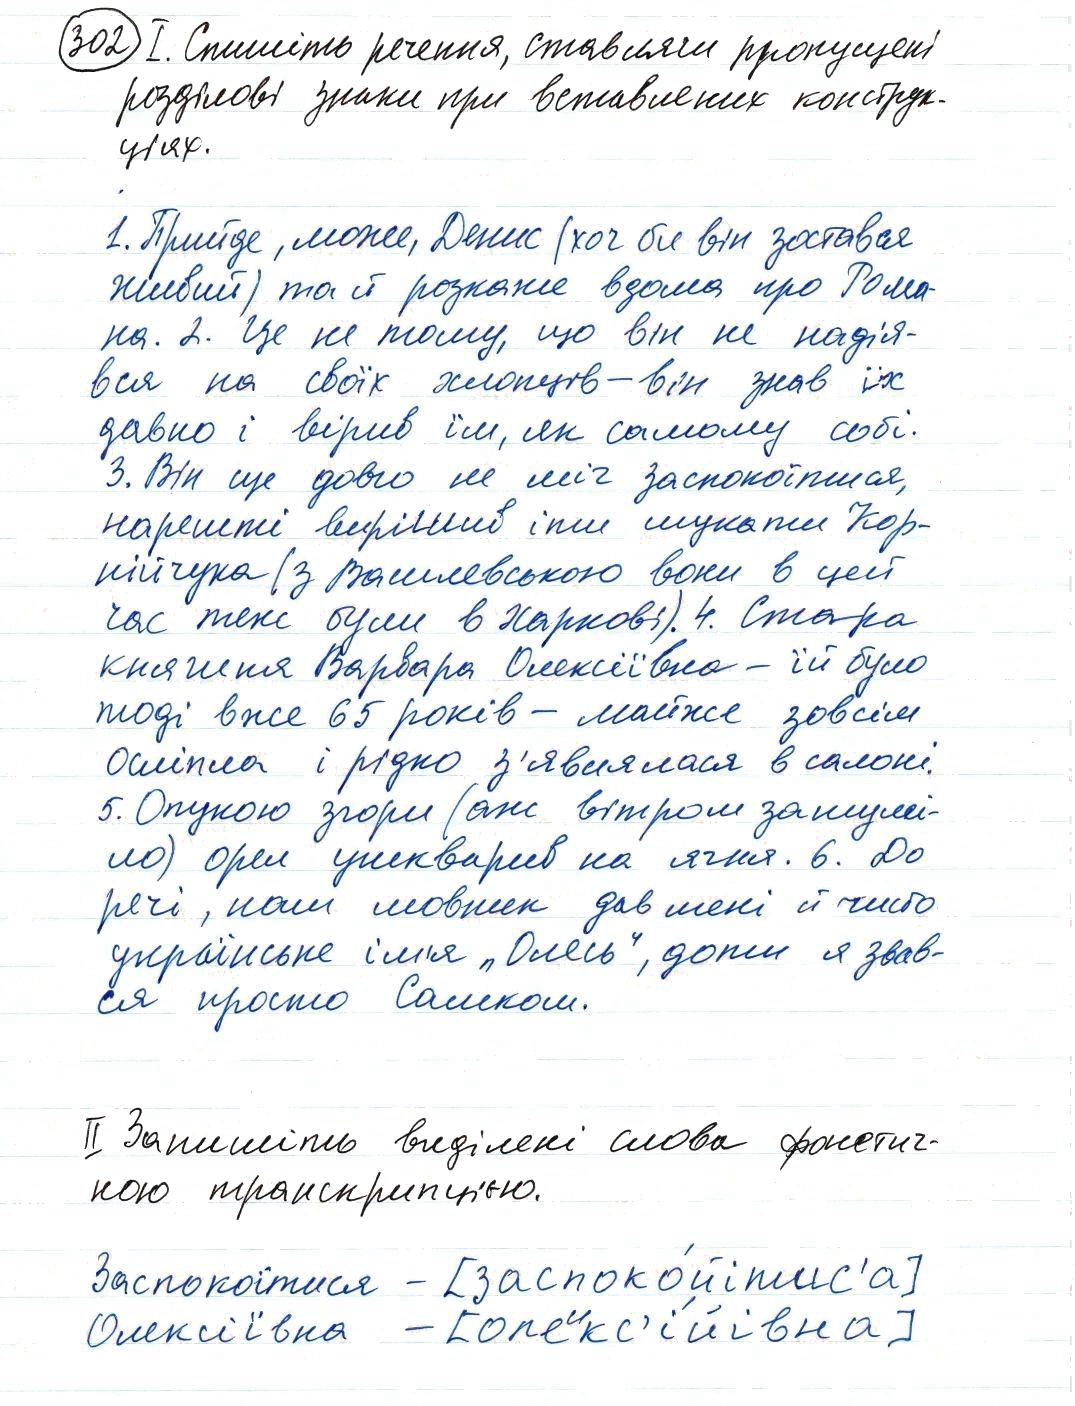 302 I. Спишіть речення, ставлячи пропущені
розділові знаки при вставлених конструк-
ціях.
1. Прийде, може, Денис (хоч би він зостався
живий) та й розкаже вдома про Рома-
на. 2. Це не тому, що він не надія-
вся на своїх хлопців – він знав їх
давно і вірив їм, як самому собі.
3. Він ще довго не міг заспокоїтися,
нарешті вирішив іти шукати Кор-
нійчука (з Василевською вони в цей
час теж були в Харкові). 4. Стара
княгиня Варвара Олексіївна – їй було
тоді вже 65 років – майже зовсім
осліпла і рідко з'являлася в салоні.
5. Опукою згори (аж вітром зашумі-
ло) орел ушкварив на ягня. 6. До
речі, наш мовник дав мені й чисто
українське ім'я „Олесь“, доти я звав-
ся просто Сашком.
II Запишіть виділені слова фонетич-
ною транскрипцією.
Заспокоїтися – [заспоко́йітис'а]
Олексіївна – [оле͡ᴵкс'і́йівна]